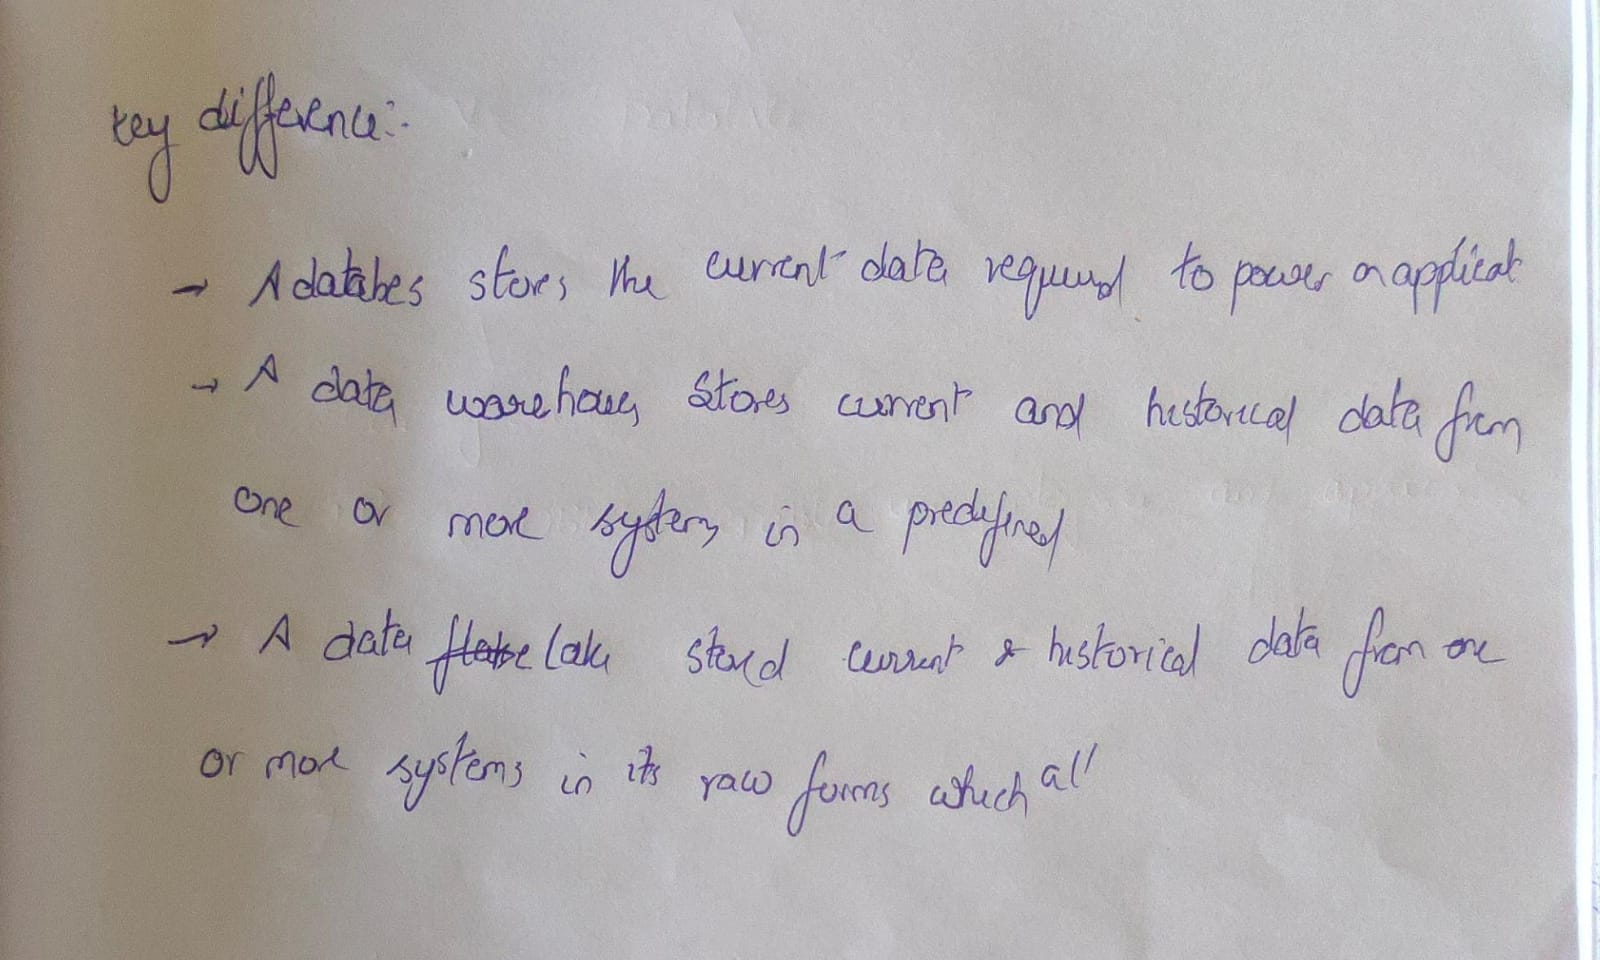 key difference:-
→ A databes stores the current data required to power an applicat
→ A data warehouse stores current and historical data from
one or more systems in a predefined
→ A data lake stored current & historical data from one
or more systems in its raw forms which all